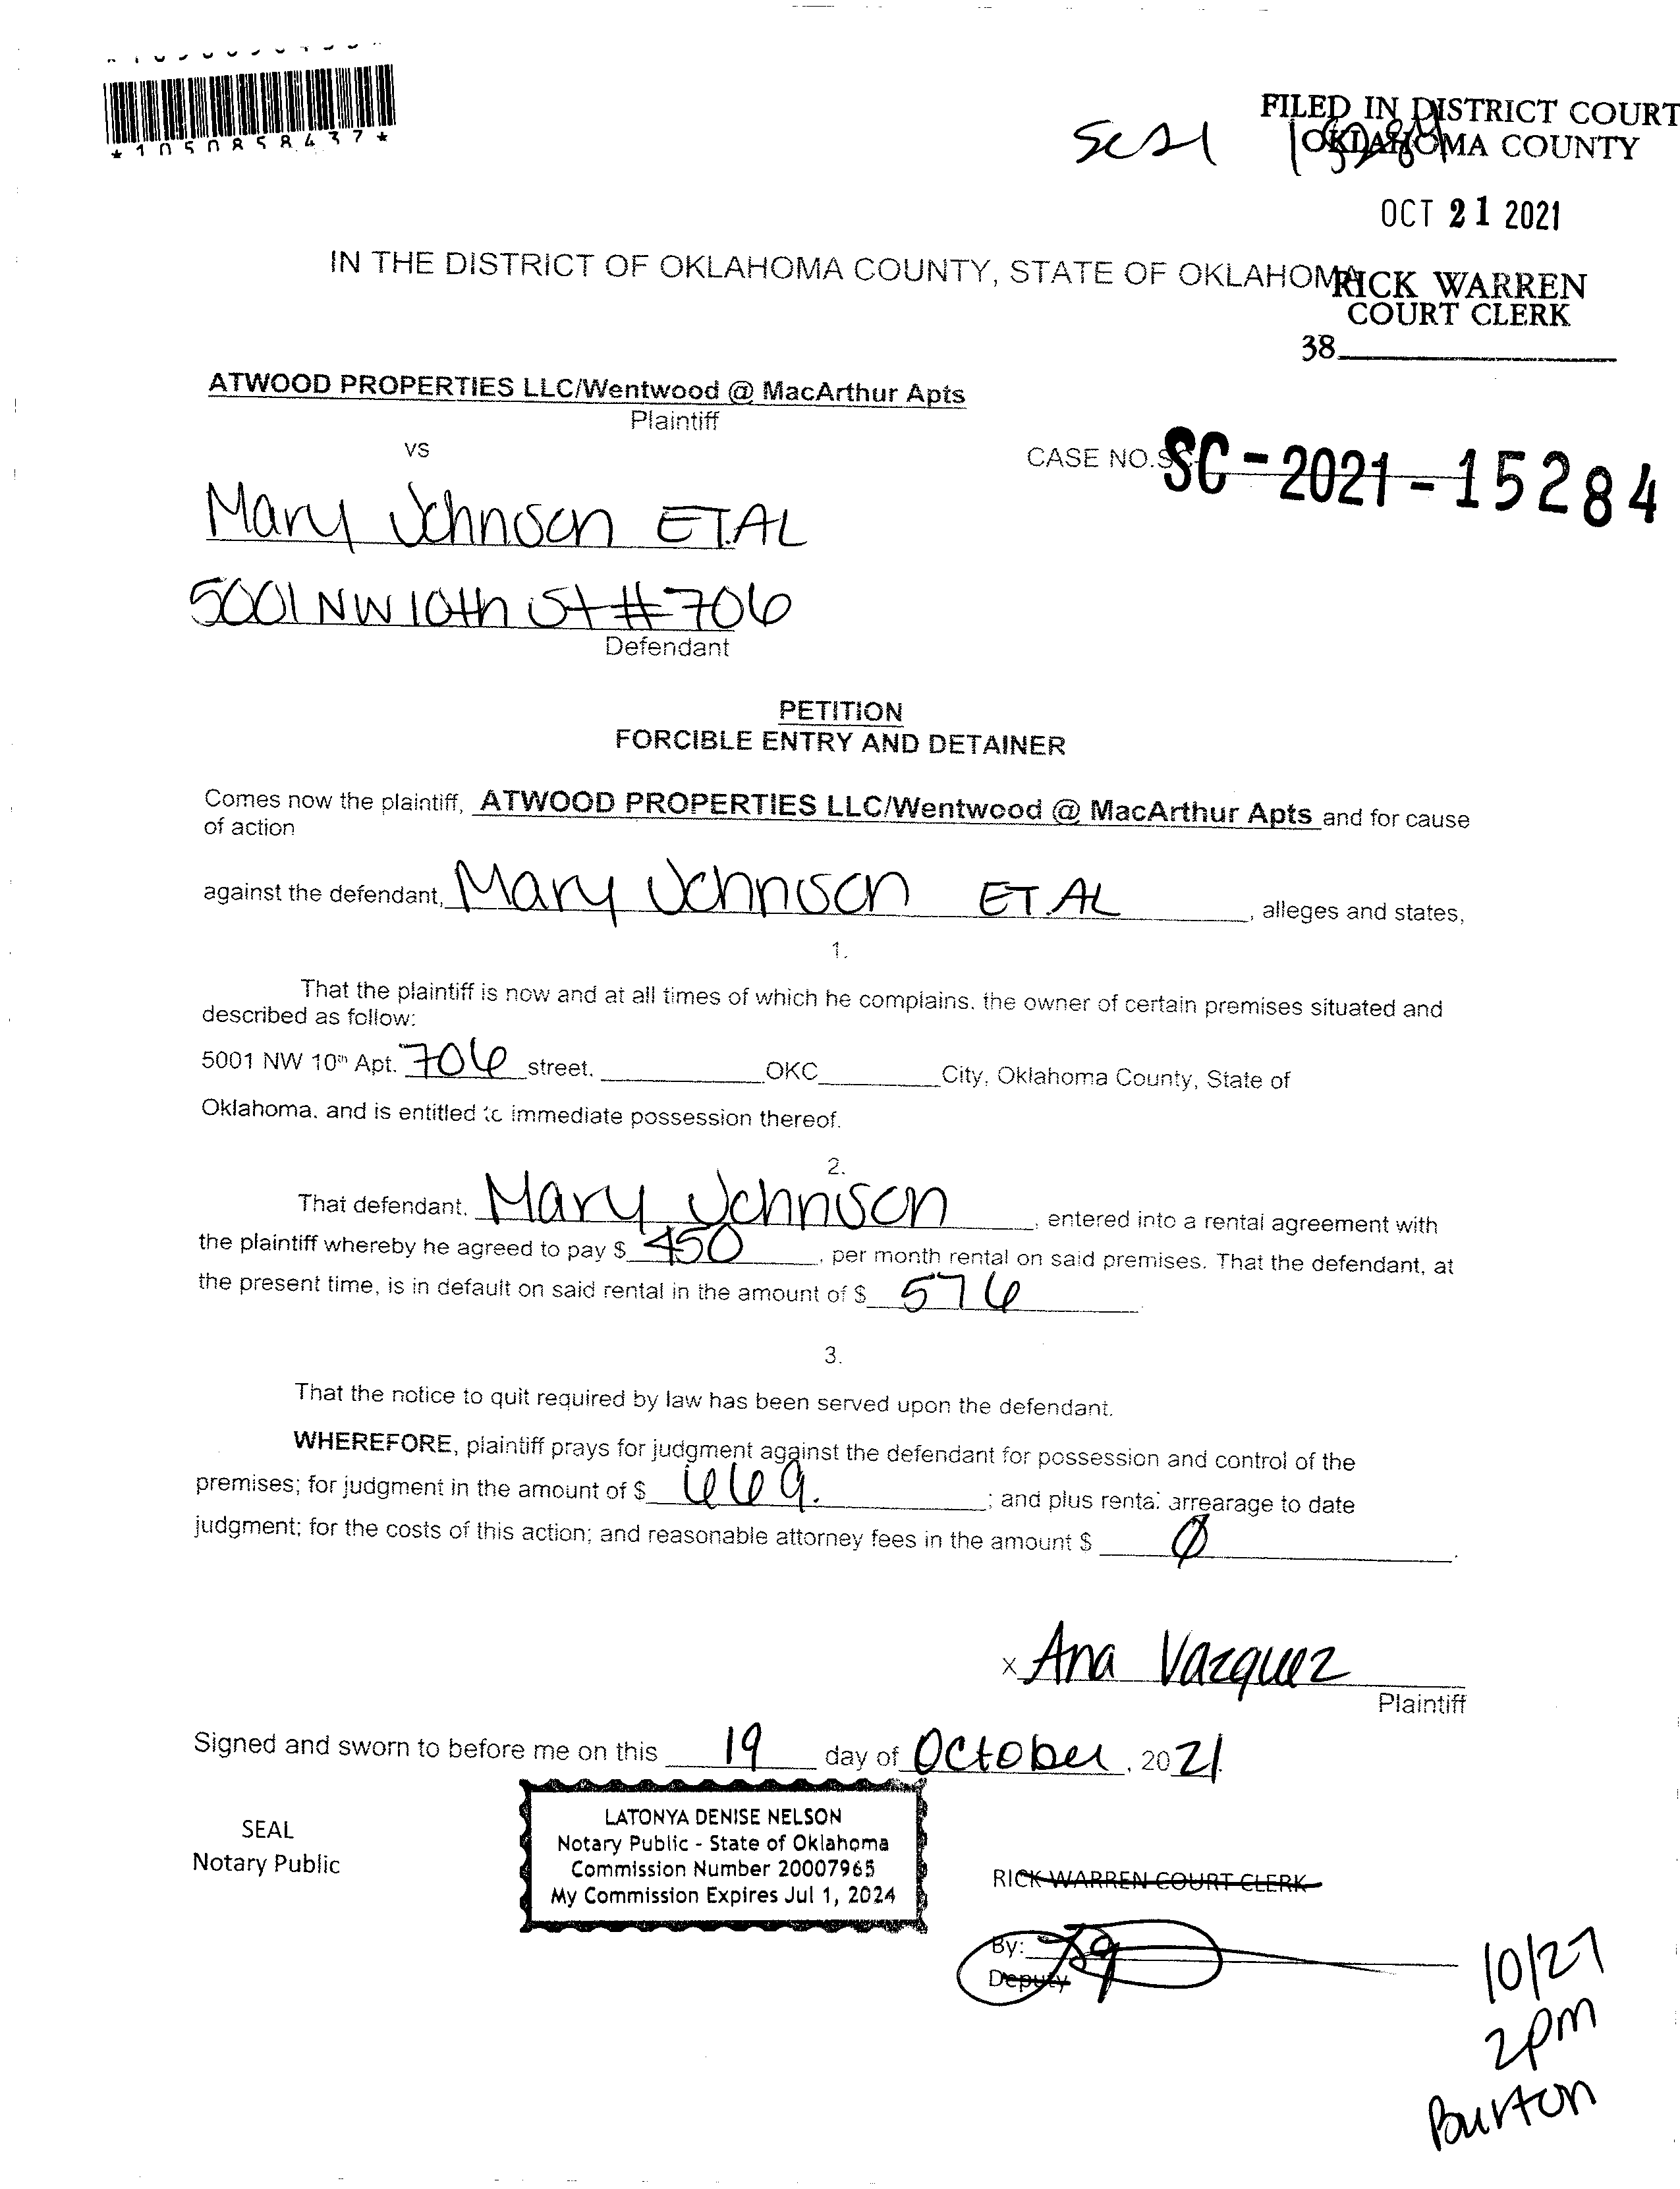 *1050858437*
SC21 15284
FILED IN DISTRICT COURT
OKLAHOMA COUNTY
OCT 21 2021
IN THE DISTRICT OF OKLAHOMA COUNTY, STATE OF OKLAHOMA
RICK WARREN
COURT CLERK
38
ATWOOD PROPERTIES LLC/Wentwood @ MacArthur Apts
Plaintiff
vs
CASE NO. SC-2021-15284
Mary Johnson ET.AL
5001 NW 10th St #706
Defendant
PETITION
FORCIBLE ENTRY AND DETAINER
Comes now the plaintiff, ATWOOD PROPERTIES LLC/Wentwood @ MacArthur Apts and for cause
of action
against the defendant, Mary Johnson ET.AL, alleges and states,
1.
That the plaintiff is now and at all times of which he complains. the owner of certain premises situated and
described as follow:
5001 NW 10th Apt. 706 street. OKC City, Oklahoma County, State of
Oklahoma. and is entitled to immediate possession thereof.
2.
That defendant. Mary Johnson, entered into a rental agreement with
the plaintiff whereby he agreed to pay $ 450, per month rental on said premises. That the defendant, at
the present time, is in default on said rental in the amount of $ 576
3.
That the notice to quit required by law has been served upon the defendant.
WHEREFORE, plaintiff prays for judgment against the defendant for possession and control of the
premises; for judgment in the amount of $ 669. ; and plus rental arrearage to date
judgment; for the costs of this action; and reasonable attorney fees in the amount $ Ø.
x Ana Vazquez
Plaintiff
Signed and sworn to before me on this 19 day of October, 2021.
SEAL
Notary Public
LATONYA DENISE NELSON
Notary Public - State of Oklahoma
Commission Number 20007965
My Commission Expires Jul 1, 2024
RICK WARREN COURT CLERK
By:
Deputy
10/27
2pm
Burton